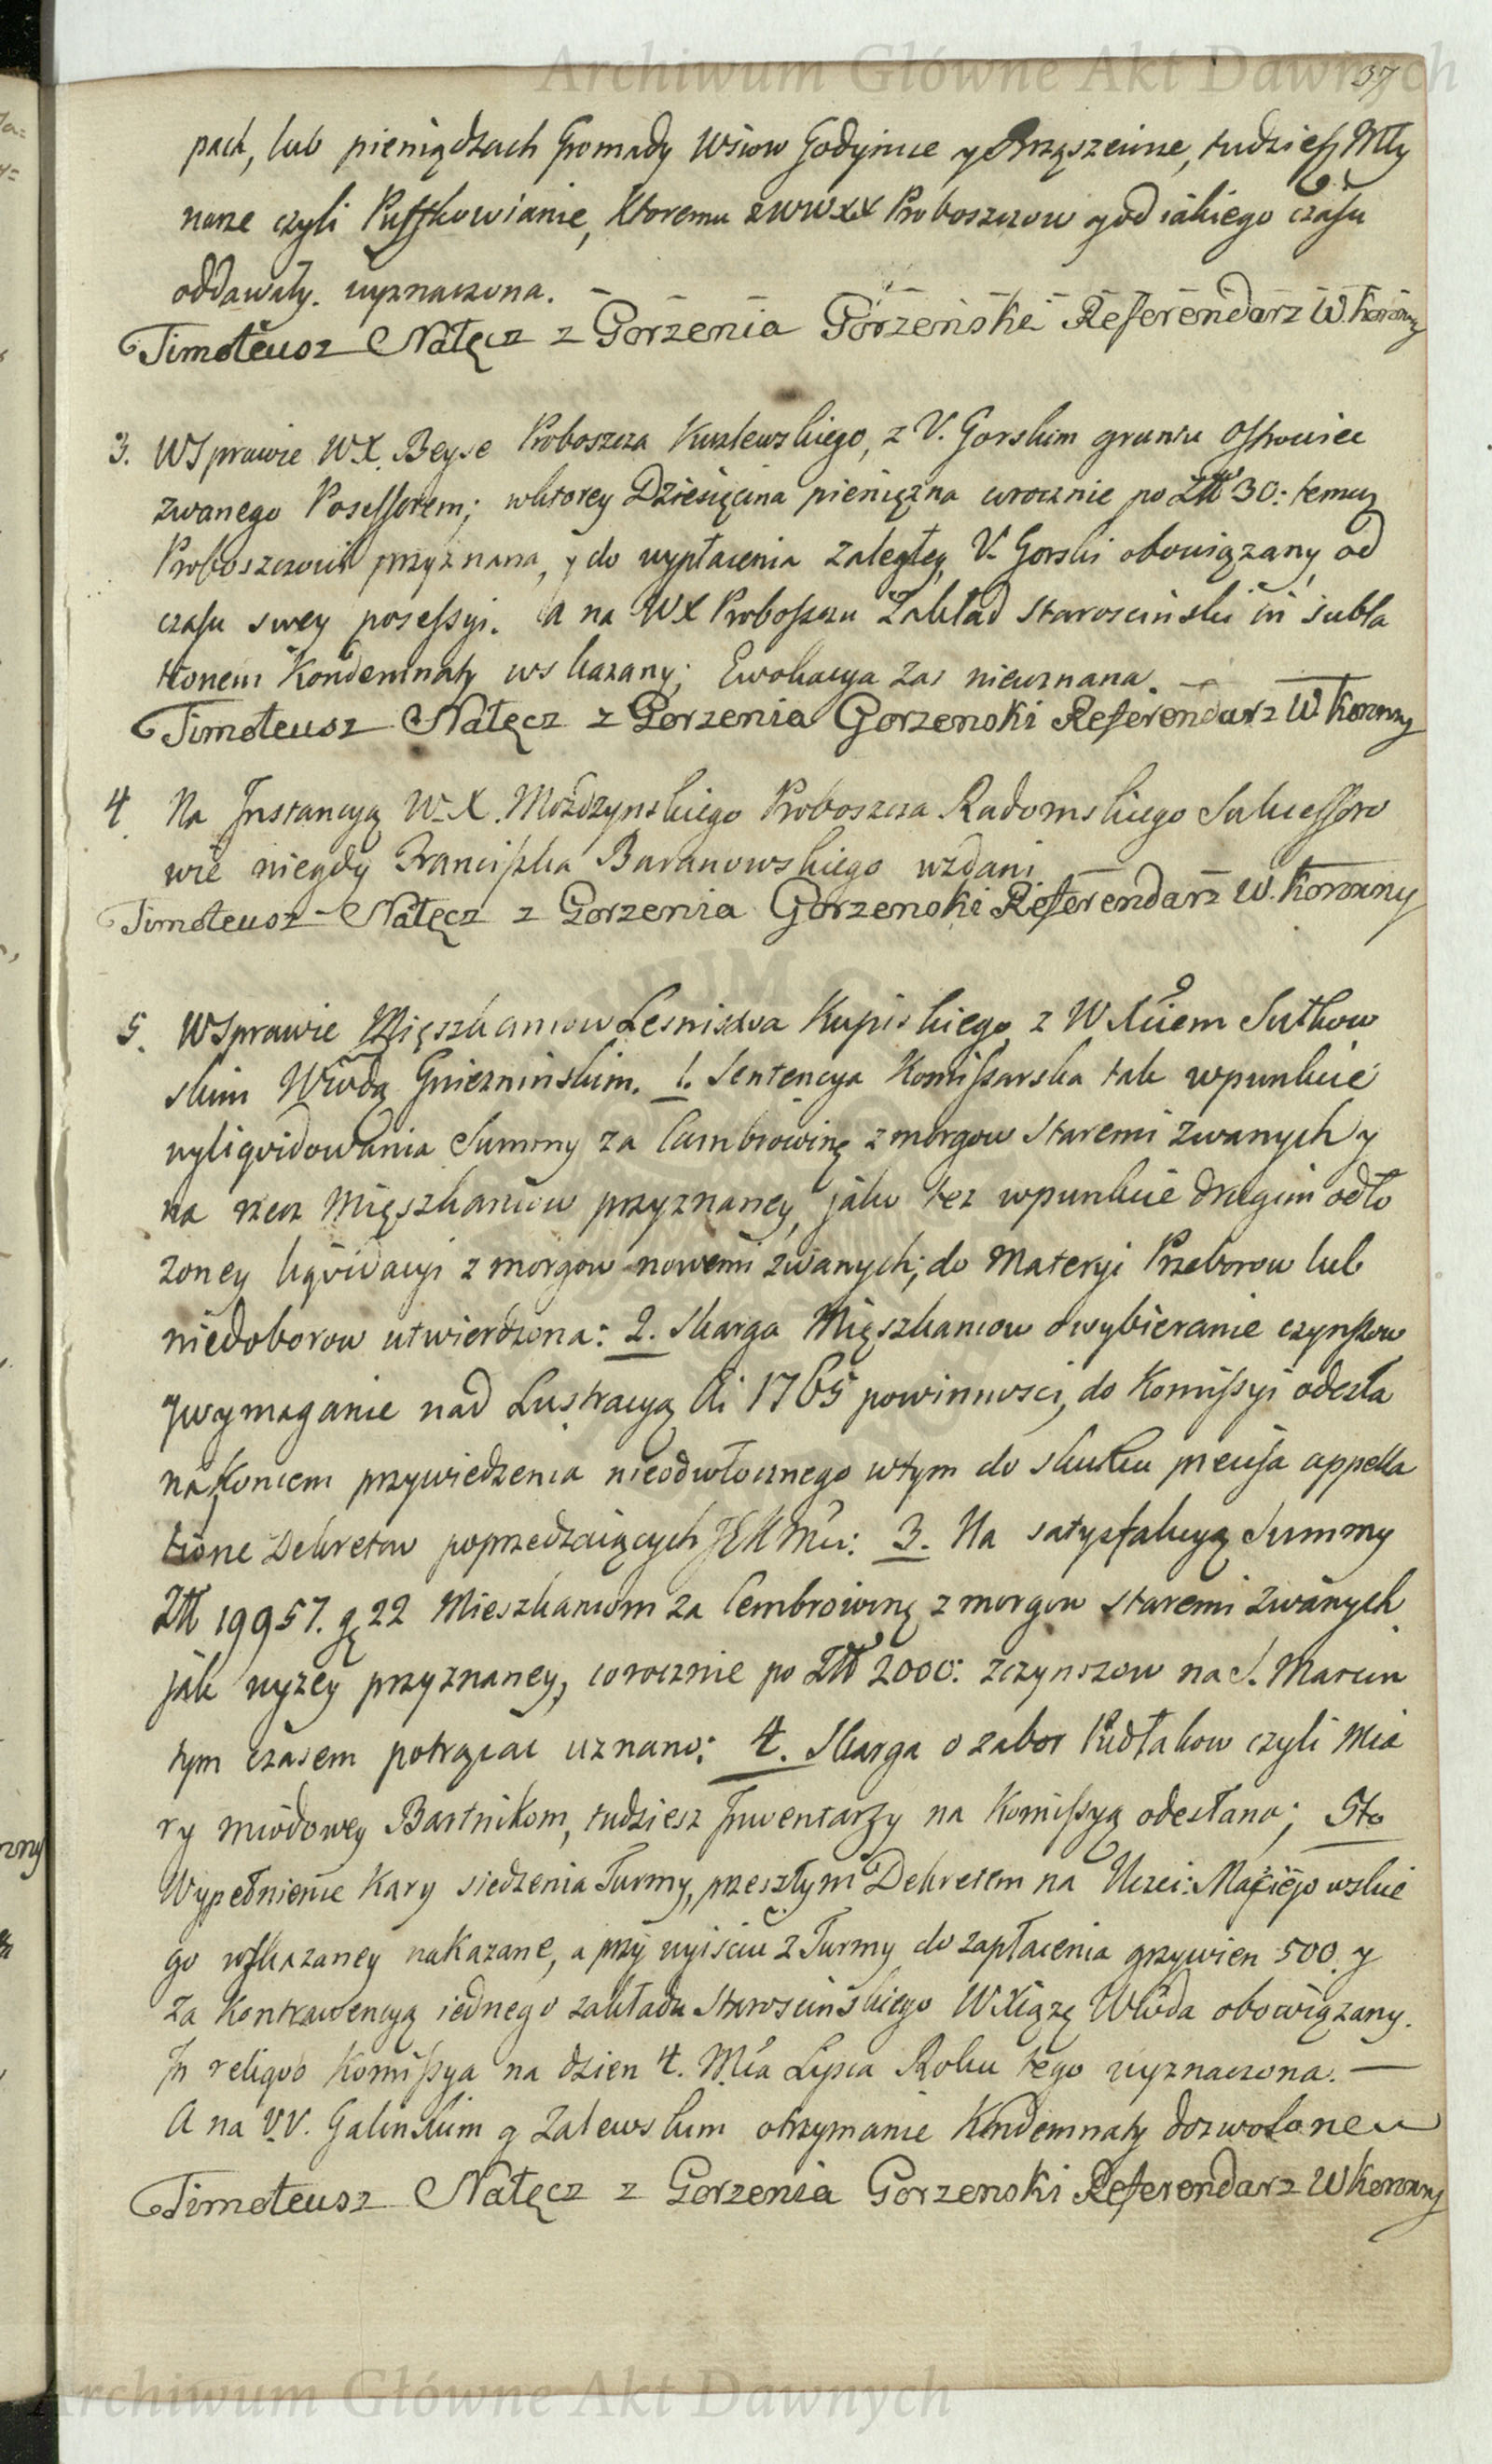 Archiwum Główne Akt Dawnych
37
pach, lub pieniądzach Gromady Wsiow Godynice y Brząszeinze, tudziesz Mły
narze czyli Pustkowianie, Ktoremu z WWXX Proboszczow y od iakiego czasu
oddawały. wyznaczona. –
Timoteusz Nałęcz z Gorzenia Gorzenski Referendarz W. Koronny
3. W Sprawie WX. Beyse Proboszcza Kuzlewskiego, z V. Gorskim gruntu Ostrowiec
zwanego Possessorem; wktorey Dziesięcina pieniężna corocznie po Złł 30: temuż
Proboszczowi przyznana, y do wypłacenia zaległey, V. Gorski obowiązany od
czasu swey posessyi. A na WX Proboszczu Zakład Staroscinski in subla
tionem Kondemnaty wskazany; Ewokacya zas nieuznana. –
Timoteusz Nałęcz z Gorzenia Gorzenski Referendarz W. Koronny
4. Na Instancyą W.X. Mozdzynskiego Proboszcza Radomskiego Sukcessoro
wie niegdy Franciszka Baranowskiego wzdani
Timoteusz Nałęcz z Gorzenia Gorzenski Referendarz W. Koronny
5. W Sprawie Mięszkancow Lesnictwa Kupiskiego z WXciem Sułkow
skim Wwdą Gnieznińskim. 1. Sentencya Komissarska tak wpunkcie
wyliqvidowania Summy za Cembrowinę z morgow Staremi zwanych y
na rzecz Mięszkancow przyznaney, jako tez wpunkcie drugim odło
zoney liqvidacyi z morgow nowemi zwanych; do Materyi Przeborow lub
niedoborow utwierdzona: 2. Skarga Mięszkancow o wybieranie czynszow
y wymaganie nad Lustracyą Ai 1765 powinnosci, do Komissyi odesła
na, koncem przywiedzenia nieodwłocznego wtym do skutku precisa appella
tione Dekretow poprzedzaiących JEKMci: 3. Na satysfakcyą Summy
Złł 19957. gę 22 Mieszkancom za Cembrowinę z morgow Staremi zwanych
jak wyzey przyznaney, corocznie po Złł 2000: zczynszow na S. Marcin
tym czasem potrącac uznano: 4. Skarga o zabor Pudłakow czyli Mia
ry miodowey Bartnikom, tudziesz Inwentarzy na Komissyą odesłana; 5to
Wypełnienie Kary siedzenia Turmy, przeszłym Dekretem na Uczci: Macieiowskie
go wskazaney nakazane, a przy wyisciu z Turmy do zapłacenia grzywien 500. y
za Kontrawencyą iednego zakładu Staroscińskiego WXiążę Wwda obowiązany.
In reliqvo Komissya na dzien 4. Mca Lipca Roku tego wyznaczona. —
A na VV. Galinskim y Zalewskim otrzymanie Kondemnaty dozwolone
Timoteusz Nałęcz z Gorzenia Gorzenski Referendarz W Koronny
Archiwum Główne Akt Dawnych